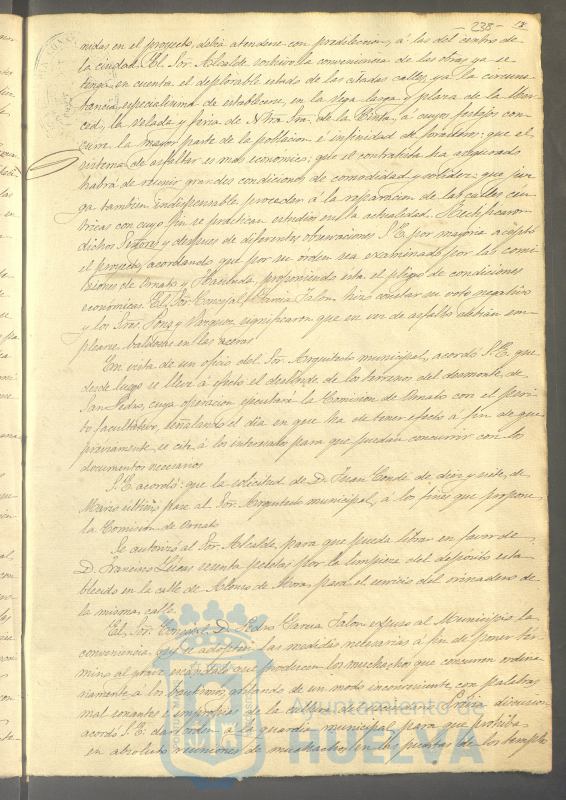 238-
nidas en el proyecto, debia atenderse con predileccion, á las del centro de
la ciudad. El Sor. Alcalde sostuvo la conveniencia de las obras ya se
tenga en cuenta el deplorable estado de las citadas calles, ya la circuns
tancia especialisima de establecerse, en la Vega larga y plaza de la Mer
ced, la velada y feria de Ntra Sra. de la Cinta, á cuyos festejos con
curre la mayor parte de la poblacion é infinidad de forasteros: que el
sistema de asfaltar es mas economico; que el contratista ha asegurado
habrá de reunir grandes condiciones de comodidad y solidez: que juz
ga tambien indispensable proceder á la reparacion de las calles cén
tricas con cuyo fin se practican estudios en la actualidad. Rectificaron
dichos Señores y despues de diferentes observaciones S.E. por mayoria aceptó
el proyecto, acordando que por su órden sea examinado por las comi
siones de Ornato y Hacienda, proponiendo esta el pliego de condiciones
económicas. El Sor. Concejal Garcia Jalon hizo constar su voto negativo
y los Sres. Pons y Vazquez, significaron que en vez de asfalto debian em
plearse baldosas en las aceras.
En vista de un oficio del Sor. Arquitecto municipal, acordó S.E. que
desde luego se lleve á efecto el deslinde de los terrenos del desmonte de
San Pedro, cuya operacion ejecutará la Comision de Ornato con el peri
to facultativo, señalando el dia en que ha de tener efecto á fin de que
préviamente se cite á los interesados para que puedan concurrir con los
documentos necesarios
S.E. acordó: que la solicitud de D. Juan Conde de diez y siete de
Marzo último pase al Sor. Arquitecto municipal, á los fines que propone
la Comision de Ornato
Se autorizó al Sor. Alcalde, para que pueda librar en favor de
D. Francisco Lucas pesetas por la limpieza del depósito esta
blecido en la calle de Alonso de Mora para el servicio del urinadero de
la misma calle.
El Sor. Concejal D. Pedro Garcia Jalon espuso al Municipio la
conveniencia que se adopten las medidas necesarias á fin de poner tér
mino al grave escándalo que producen los muchachos que concurren ordina
riamente á los bautismos, de un modo inconveniente con palabras
mal sonantes é impropias de la cultura de esta discusion
acordó S.E. dar orden á la guardia municipal para que prohiba
en absoluto reuniones de muchachos en las puertas de los templos
Ayuntamiento de
HUELVA